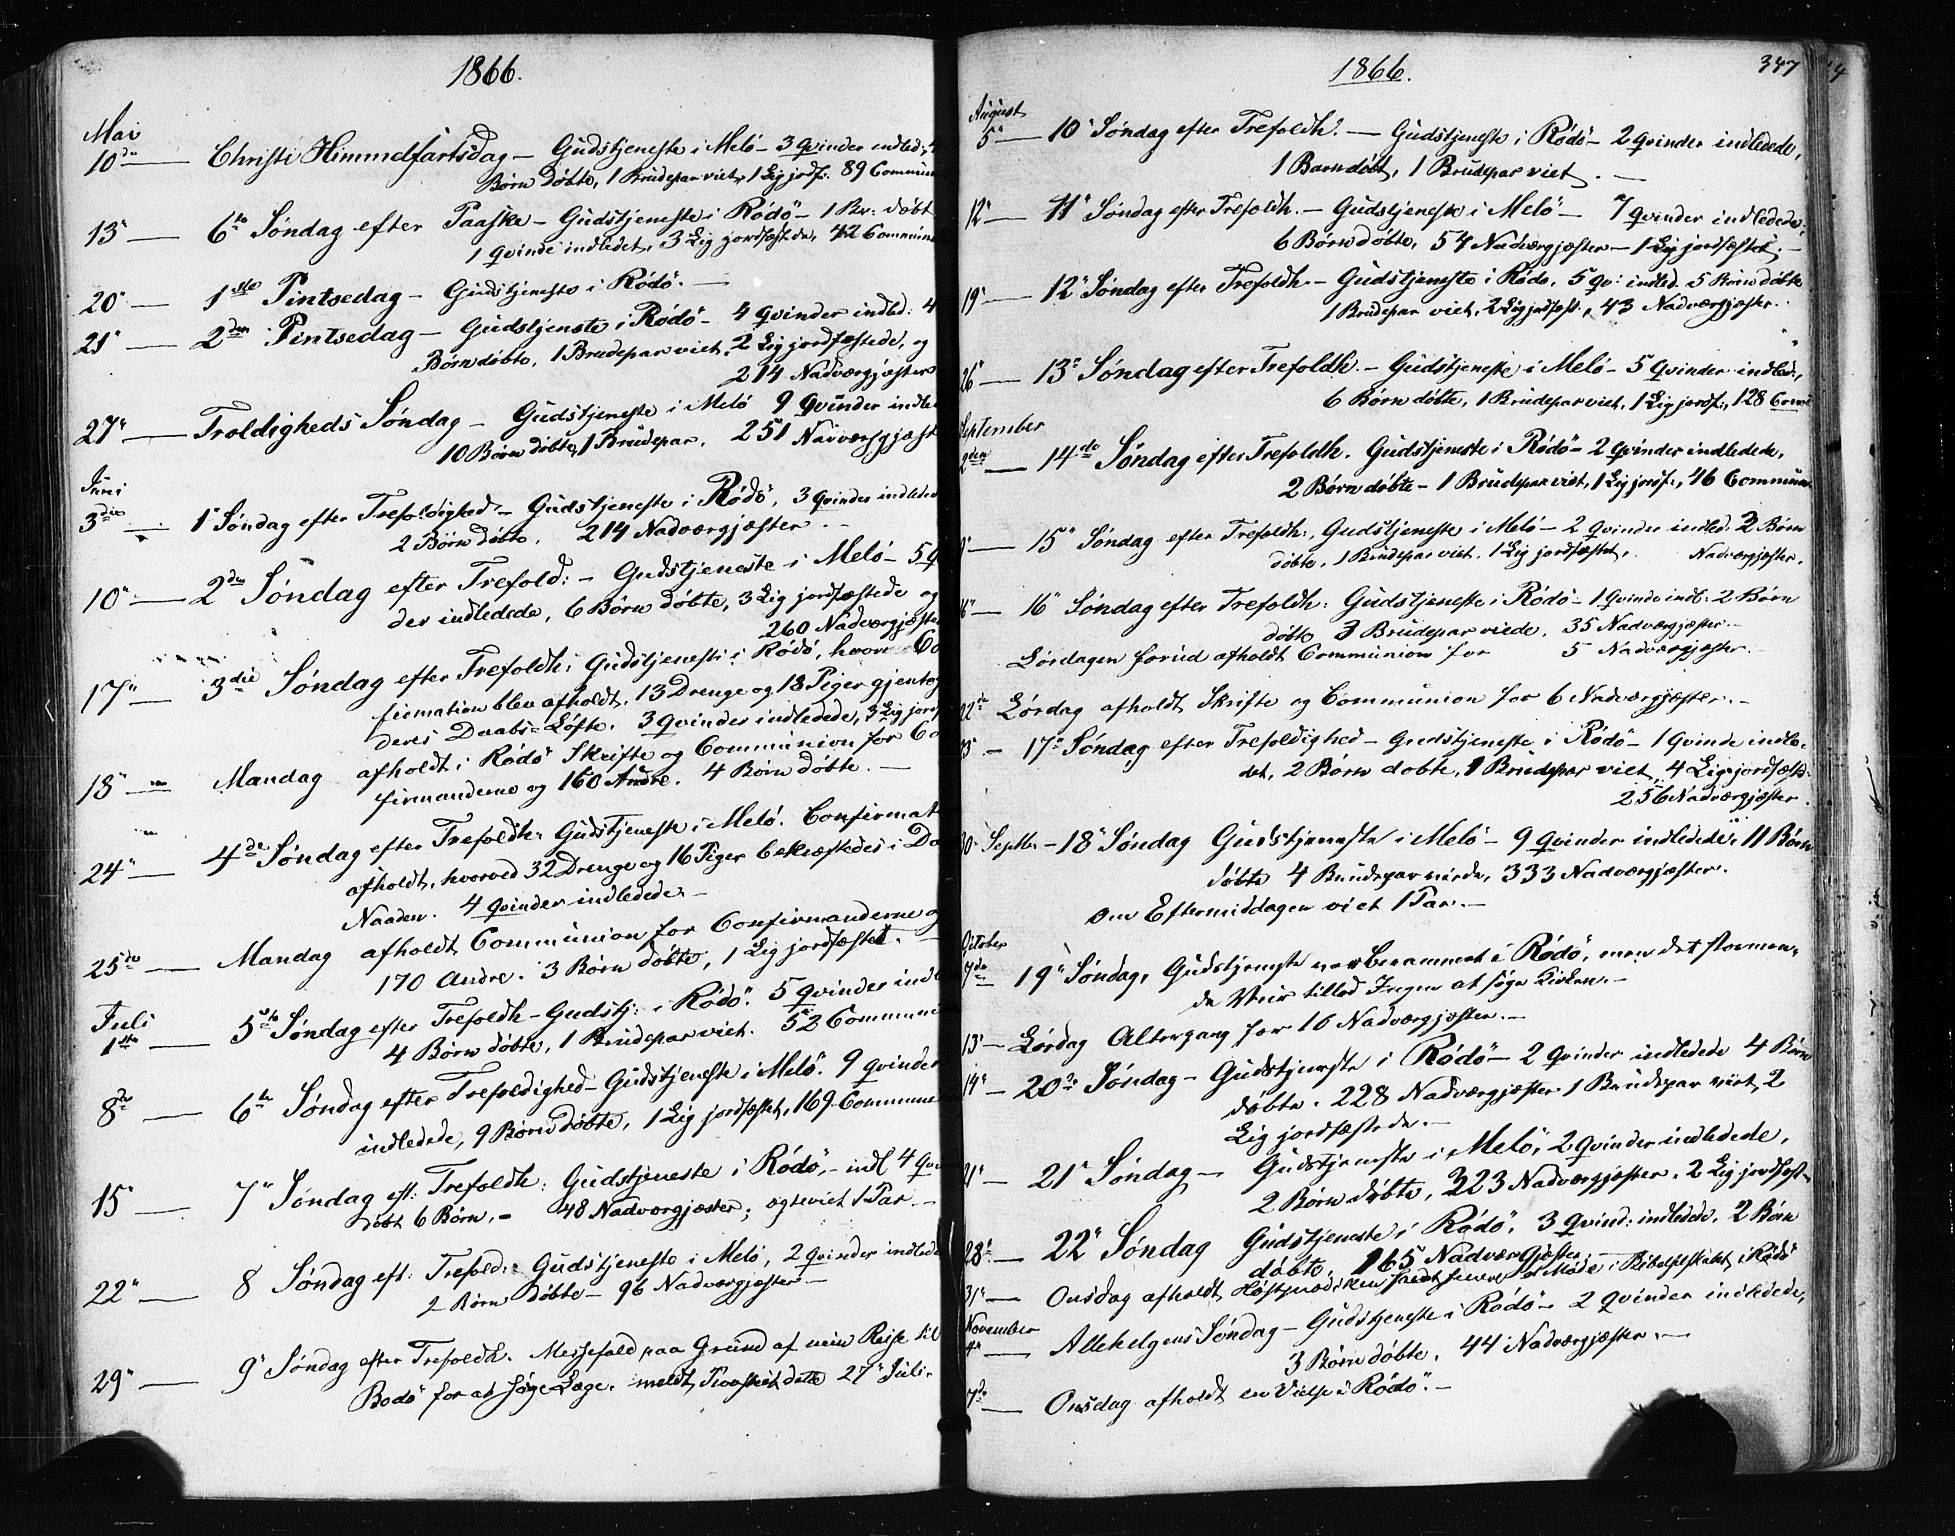 1866.
Mai
10de — Christi Himmelfartsdag — Gudstjeneste i Melö — 3 Qvinder indled:, 4
Børn døbte, 1 Brudepar viet, 1 Lig jordf: 89 Commun
13" — 6te Søndag efter Paaske — Gudstjeneste i Rödö — 1 Br: døbt
1 Qvinde indledet, 3 Lig jordfæstede, 42 Commun
20" — 1ste Pintsedag — Gudstjeneste i Rödö. —
21" — 2den Pintsedag — Gudstjenste i Rödö — 4 Qvinder indled: 4
Børn døbte, 1 Brudepar viet, 2 Lig jordfæstede, og
214 Nadvergjæster
27" — Trefoldigheds Søndag — Gudstjeneste i Melö 9 Qvinder indle
10 Børn døbte, 1 Brudepar, 251 Nadvergjæst
Juni
3die — 1" Søndag efter Trefoldighed — Gudstjeneste i Rödö, 3 Qvinder indlede
2 Børn døbte, 214 Nadvergjæster. —
10" — 2den Søndag efter Trefold: — Gudstjeneste i Melö — 5 Q
der indledede, 6 Børn døbte, 3 Lig jordfæstede og
260 Nadvergjæste
17" — 3die Søndag efter Trefoldh: Gudstjeneste i Rödö, hvor Co
firmation blev afholdt, 13 Drenge og 18 Piger gjentog
deres Daabs-Løfte. 3 Qvinder indledede, 3 Lig jord
18" — Mandag afholdt i Rödö Skrifte og Communion for Co
firmanderne og 160 Andre. 4 Børn døbte. —
24" — 4de Søndag efter Trefoldh: Gudstjeneste i Melö. Confirmat
afholdt, hvorved 32 Drenge og 16 Piger bekræftedes i Da
Naaden. 4 Qvinder indledede. —
25de — Mandag afholdt Communion for Confirmanderne og
170 Andre. 3 Børn døbte, 1 Lig jordfæstet. —
Juli
1ste — 5te Søndag efter Trefoldh — Gudstj: i Rödö. 5 Qvinder indl
4 Børn døbte, 1 Brudepar viet. 52 Communi
8de — 6te Søndag efter Trefoldighed — Gudstjeneste i Melö. 9 Qvinder
indledede, 9 Børn døbte, 1 Lig jordfæstet, 169 Commune
15" — 7" Søndag eft: Trefoldh: Gudstjeneste i Rödö, — indl 4 Qvi
døbt 6 Børn, — 48 Nadvergjæster; ægteviet 1 Par —
22" — 8 Søndag eft: Trefold: Gudstjeneste i Melö, 2 Qvinder indlede
2 Børn døbte — 96 Nadvergjæster —
29" — 9" Søndag efter Trefoldh. Messefald paa Grund af min Reise til
Bodö for at søge Læge. meldt Provstiet dette 27" Juli.
1866.
347
August
5" — 10" Søndag efter Trefoldh. — Gudstjeneste i Rödö — 2 Qvinder indledede,
1 Barn døbt, 1 Brudepar viet. —
12" — 11" Søndag efter Trefoldh. — Gudstjeneste i Melö — 7 Qvinder indledede,
6 Børn døbte, 54 Nadvergjæster — 1 Lig jordfæstet. —
19" — 12" Søndag efter Trefoldh — Gudstjeneste i Rödö, 5 Qv: indled. 5 Børn døbte
1 Brudepar viet, 2 Lig jordfæst., 43 Nadvergjæster.
26" — 13" Søndag efter Trefoldh. — Gudstjeneste i Melö — 5 Qvinder indled:,
6 Børn døbte, 1 Brudepar viet, 1 Lig jordf:, 128 Comm
September
2den — 14de Søndag efter Trefoldh. Gudstjeneste i Rödö — 2 Qvinder indledede,
2 Børn døbte — 1 Brudepar viet, 1 Lig jordf:, 46 Commun
9" — 15" Søndag efter Trefoldh:, Gudstjeneste i Melö — 2 Qvinder indled: 2 Børn
døbte, 1 Brudepar viet, 1 Lig jordfæstet, Nadvergjæster.
16" — 16" Søndag efter Trefoldh: Gudstjeneste i Rödö — 1 Qvinde indl: 2 Børn
døbte 3 Brudepar viede, 35 Nadvergjæster —
Lørdagen forud afholdt Communion for 5 Nadvergjæster —
22de Lørdag afholdt Skrifte og Communion for 6 Nadvergjæster. —
23" — 17" Søndag efter Trefoldighed — Gudstjeneste i Rödö — 1 Qvinde indle-
det, 2 Børn døbte, 1 Brudepar viet, 4 Lig jordfæsted:
256 Nadvergjæster.
30" Septbr — 18" Søndag Gudstjeneste i Melö — 9 Qvinder indledede, 11 Børn
døbte 4 Brudepar viede, 333 Nadvergjæster.
om Eftermiddagen viet 1 Par. —
October
7de — 19" Søndag, Gudstjeneste var berammet i Rödö, men det stormen-
de Veir tillod Ingen at søge Kirken. —
13" — Lørdag Altergang for 16 Nadvergjæster. —
14" — 20de Søndag — Gudstjeneste i Rödö — 2 Qvinder indledede 4 Børn
døbte. 228 Nadvergjæster 1 Brudepar viet, 2
Lig jordfæstede. —
21" — 21" Søndag — Gudstjeneste i Melö, 2 Qvinder indledede,
2 Børn døbte, 323 Nadvergjæster, 2 Lig jordfæst
28" — 22" Søndag Gudstjeneste i Rödö. 3 Qvind: indledede, 2 Børn
døbte, 165 Nadvergjæster. —
31" — Onsdag afholdt Høstprædiken samt Møde i Bibelselskabet i Rödö
November
4" — Allehelgens Søndag — Gudstjeneste i Rödö — 2 Qvinder indledede,
3 Børn døbte, 44 Nadvergjæster. —
7de — Onsdag afholdt en Vielse i Rödö. —